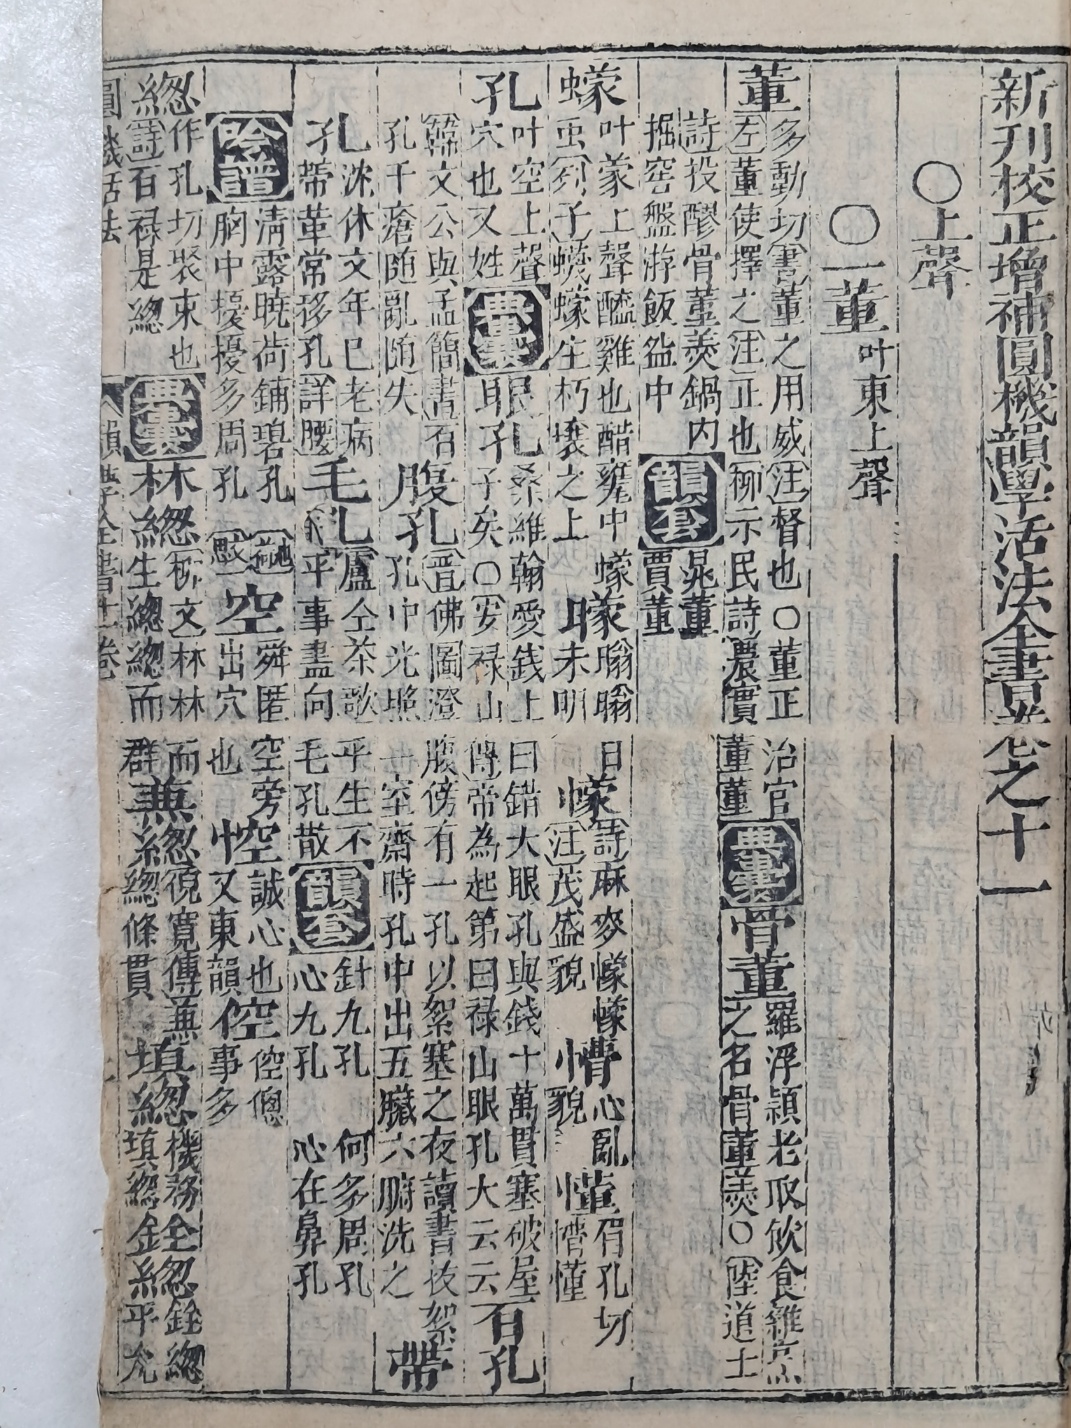 新刊校正增補圓機韻學活法全書卷之十一
〇上聲
〇一董叶東上聲
董多動切書董之用威注督也〇董正治官
左董使擇之注正也柳示民詩濃實董董
典彙骨董羅浮頴老取飲食雜烹之名骨董羹〇陸道士
詩投醪骨董羹鍋內
掘窖盤游飯盌中
韻套
晁董
賈董
蠓叶蒙上聲醯雞也醋甕中蠓
䖝列子蠛蠓生朽壤之上
曚瞈曚日未明
幪詩麻麥幪幪注茂盛貌
懵心亂貌
董胥孔切懵懂
孔叶空上聲穴也又姓
典彙眼孔桑維翰愛錢上曰錯大眼孔與錢十萬貫塞破屋
耳孔子矣〇安祿山傳帝為起第曰祿山眼孔大云云
石孔韓文公與孟簡書百孔千瘡随亂随失
腹孔晉佛圖澄腹傍有一孔以絮塞之夜讀書拔絮
孔中光照室齋時孔中出五臟六腑洗之
帶孔沈休文年已老病革帶常移孔詳腰
毛孔盧仝茶歌平生不平事盡向毛孔散
韻套
針九孔 何多周孔
心九孔 心在鼻孔
吟譜清露暁荷鋪碧孔
胸中擾擾多周孔
空舜匿空旁出穴也
悾誠心也又東韻
倥倥傯事多
總作孔切聚束也
詩百祿是總
典彙林總柳文林林而群
生總總而
兼總倪寛傳兼總條貫
填總機務全總銓總
圓機活法